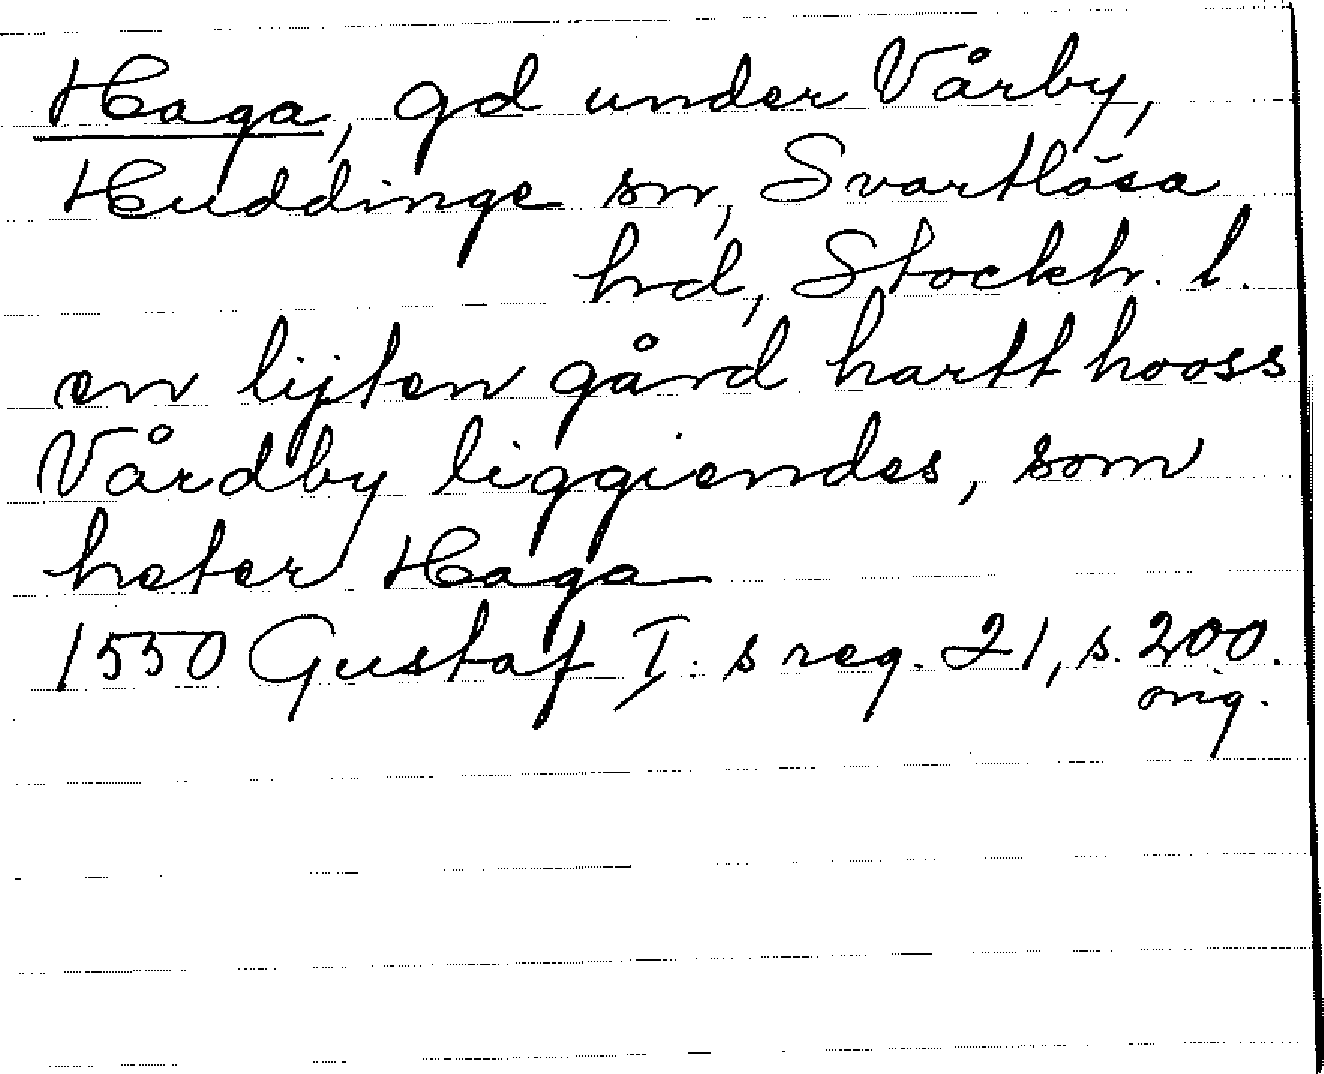 Haga, gd under Vårby,
Huddinge sn, Svartlösa
hrd, Stockh. l.
en lijten gård hartt hooss
Vårdby liggiendes, som
heter Haga
1550 Gustaf I:s reg. 21, s. 200.
orig.